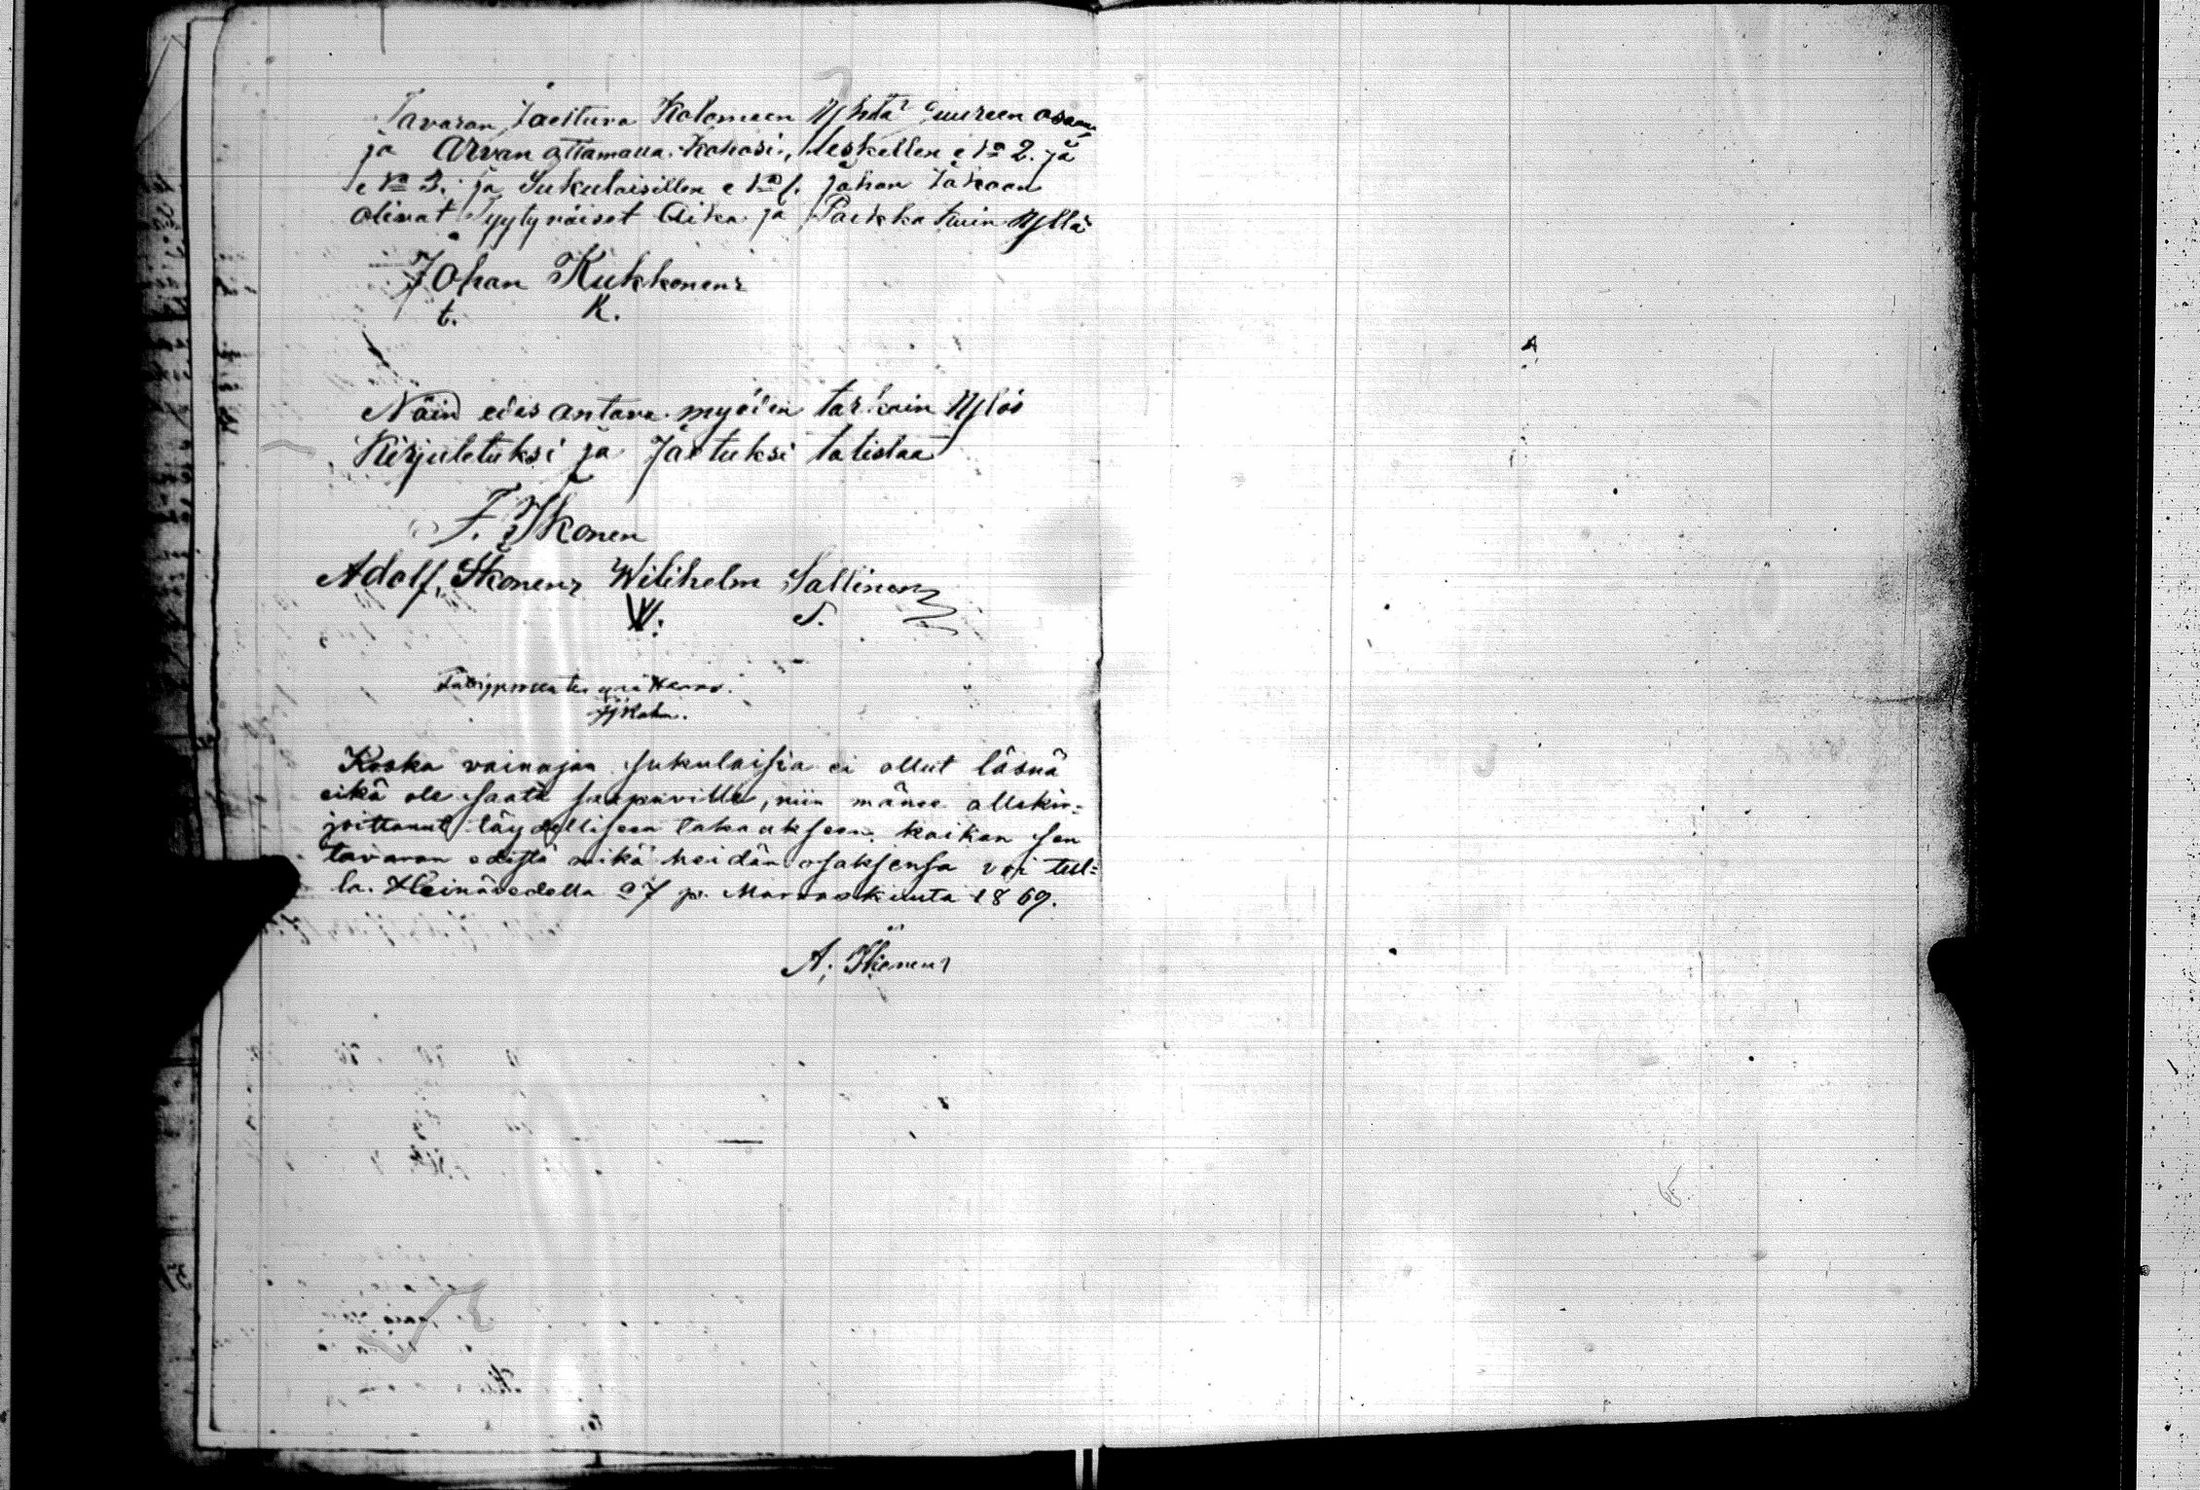 Tavaran Jaettuna Kolomeen Yhtä suureen osaan
ja Arvan ottamalla Kohosi, Leskellen No 2. ja
No 3. ja Sukulaisillen No 1. johon Jakoon
olivat Tyytyväiset Aika ja Paikka kuin Yllä
Johan Kukkonen
t. K.
Näin edes antava myöden tarkoin Ylös
Kirjuletuksi ja Jaetuksi totistaa
F. Ikonen
Adolf Ikonen Wilihelm Sallinen
W. S.
Koska vainajan sukulaisia ei ollut läsnä
eikä ole saatu saapuville, niin mänee allekir-
joittanut täydelliseen takaukseen kaikan sen
tavaran edestä mikä heidän osaksensa voi tul-
la. Heinävedellä 27 p. Marraskuuta 1869.
A. Ikonen